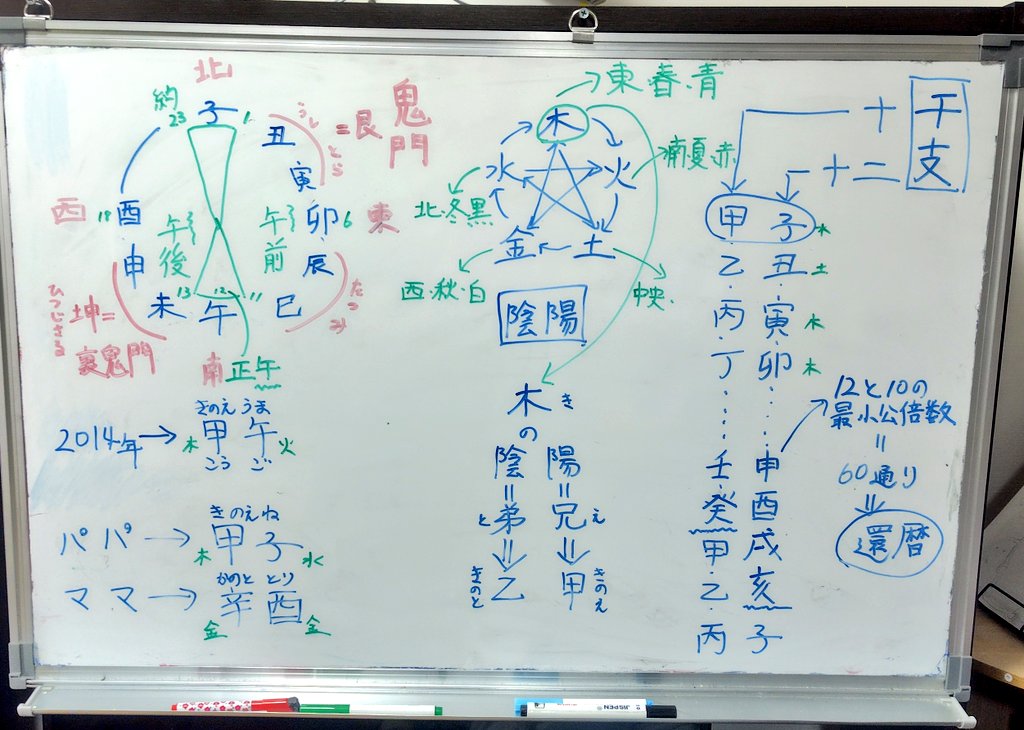 北
約
23
子
1
うし
丑
=艮
鬼門
とら
寅
西
18
酉
午後
午前
卯
6
東
申
辰
たつ
み
ひつじさる
坤=
裏鬼門
未
13
12
11
午
巳
南
正午
2014年→
きのえ うま
木 甲午 火
こう ご
パパ→
きのえね
木 甲子 水
ママ→
かのと とり
辛酉
金 金
東・春・青
木
水
火
南・夏・赤
北・冬・黒
金
土
西・秋・白
中央・
陰陽
木き
の
陰 陽
= =
と弟 兄え
きのと 乙 甲 きのえ
干支
十
十二
甲子 水
乙丑 土
丙寅 木
丁卯 木
壬申
癸酉
甲戌
乙亥
丙子
12と10の
最小公倍数
=
60通り
還暦
JISPEN